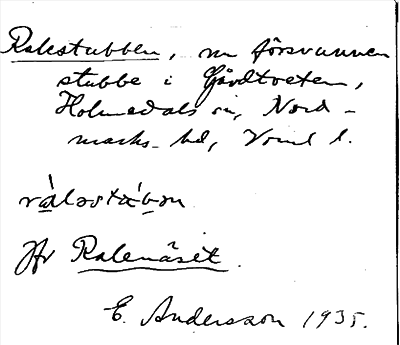 Ralestubben, nu försvunnen
stubbe i Gårdtveten,
Holmedals sn, Nord-
marks hd, Vrml l.
ràləstùbən
Jfr Ralenäset.
E. Andersson 1935.